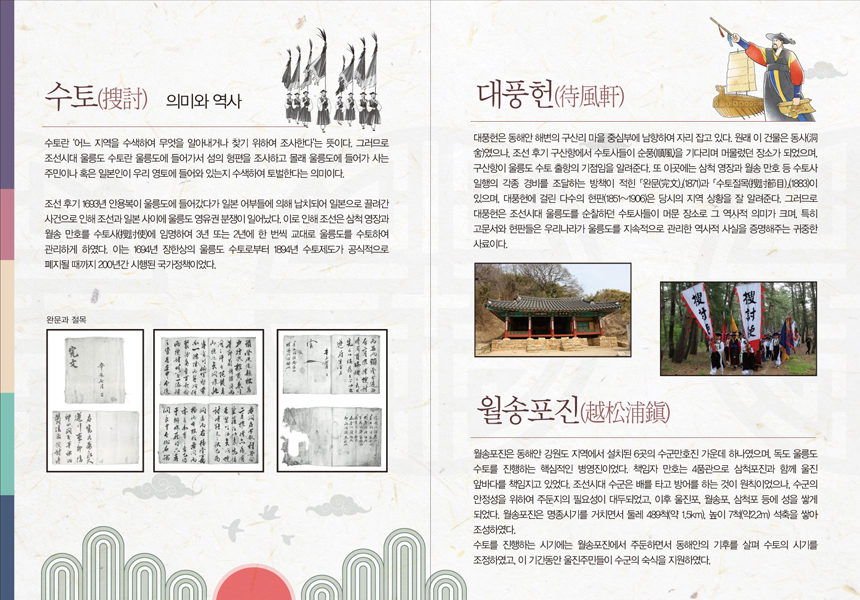 수토(搜討) 의미와 역사
수토란 '어느 지역을 수색하여 무엇을 알아내거나 찾기 위하여 조사한다'는 뜻이다. 그러므로
조선시대 울릉도 수토란 울릉도에 들어가서 섬의 형편을 조사하고 몰래 울릉도에 들어가 사는
주민이나 혹은 일본인이 우리 영토에 들어와 있는지 수색하여 토벌한다는 의미이다.
조선 후기 1693년 안용복이 울릉도에 들어갔다가 일본 어부들에 의해 납치되어 일본으로 끌려간
사건으로 인해 조선과 일본 사이에 울릉도 영유권 분쟁이 일어났다. 이로 인해 조선은 삼척 영장과
월송 만호를 수토사(搜討使)에 임명하여 3년 또는 2년에 한 번씩 교대로 울릉도를 수토하여
관리하게 하였다. 이는 1694년 장한상의 울릉도 수토로부터 1894년 수토제도가 공식적으로
폐지될 때까지 200년간 시행된 국가정책이었다.
완문과 절목
完文
대풍헌(待風軒)
대풍헌은 동해안 해변의 구산리 마을 중심부에 남향하여 자리 잡고 있다. 원래 이 건물은 동사(洞
舍)였으나, 조선 후기 구산항에서 수토사들이 순풍(順風)을 기다리며 머물렀던 장소가 되었으며,
구산항이 울릉도 수토 출항의 기점임을 알려준다. 또 이곳에는 삼척 영장과 월송 만호 등 수토사
일행의 각종 경비를 조달하는 방책이 적힌 「완문(完文)」(1871)과 「수토절목(搜討節目)」(1883)이
있으며, 대풍헌에 걸린 다수의 현판(1851~1906)은 당시의 지역 상황을 잘 알려준다. 그러므로
대풍헌은 조선시대 울릉도를 순찰하던 수토사들이 머문 장소로 그 역사적 의미가 크며, 특히
고문서와 현판들은 우리나라가 울릉도를 지속적으로 관리한 역사적 사실을 증명해주는 귀중한
사료이다.
搜討
搜討使
월송포진(越松浦鎭)
월송포진은 동해안 강원도 지역에서 설치된 6곳의 수군만호진 가운데 하나였으며, 독도 울릉도
수토를 진행하는 핵심적인 병영진이었다. 책임자 만호는 4품관으로 삼척포진과 함께 울진
앞바다를 책임지고 있었다. 조선시대 수군은 배를 타고 방어를 하는 것이 원칙이었으나, 수군의
안정성을 위하여 주둔지의 필요성이 대두되었고, 이후 울진포, 월송포, 삼척포 등에 성을 쌓게
되었다. 월송포진은 명종시기를 거치면서 둘레 489척(약 1.5km), 높이 7척(약2.2m) 석축을 쌓아
조성하였다.
수토를 진행하는 시기에는 월송포진에서 주둔하면서 동해안의 기후를 살펴 수토의 시기를
조정하였고, 이 기간동안 울진주민들이 수군의 숙식을 지원하였다.